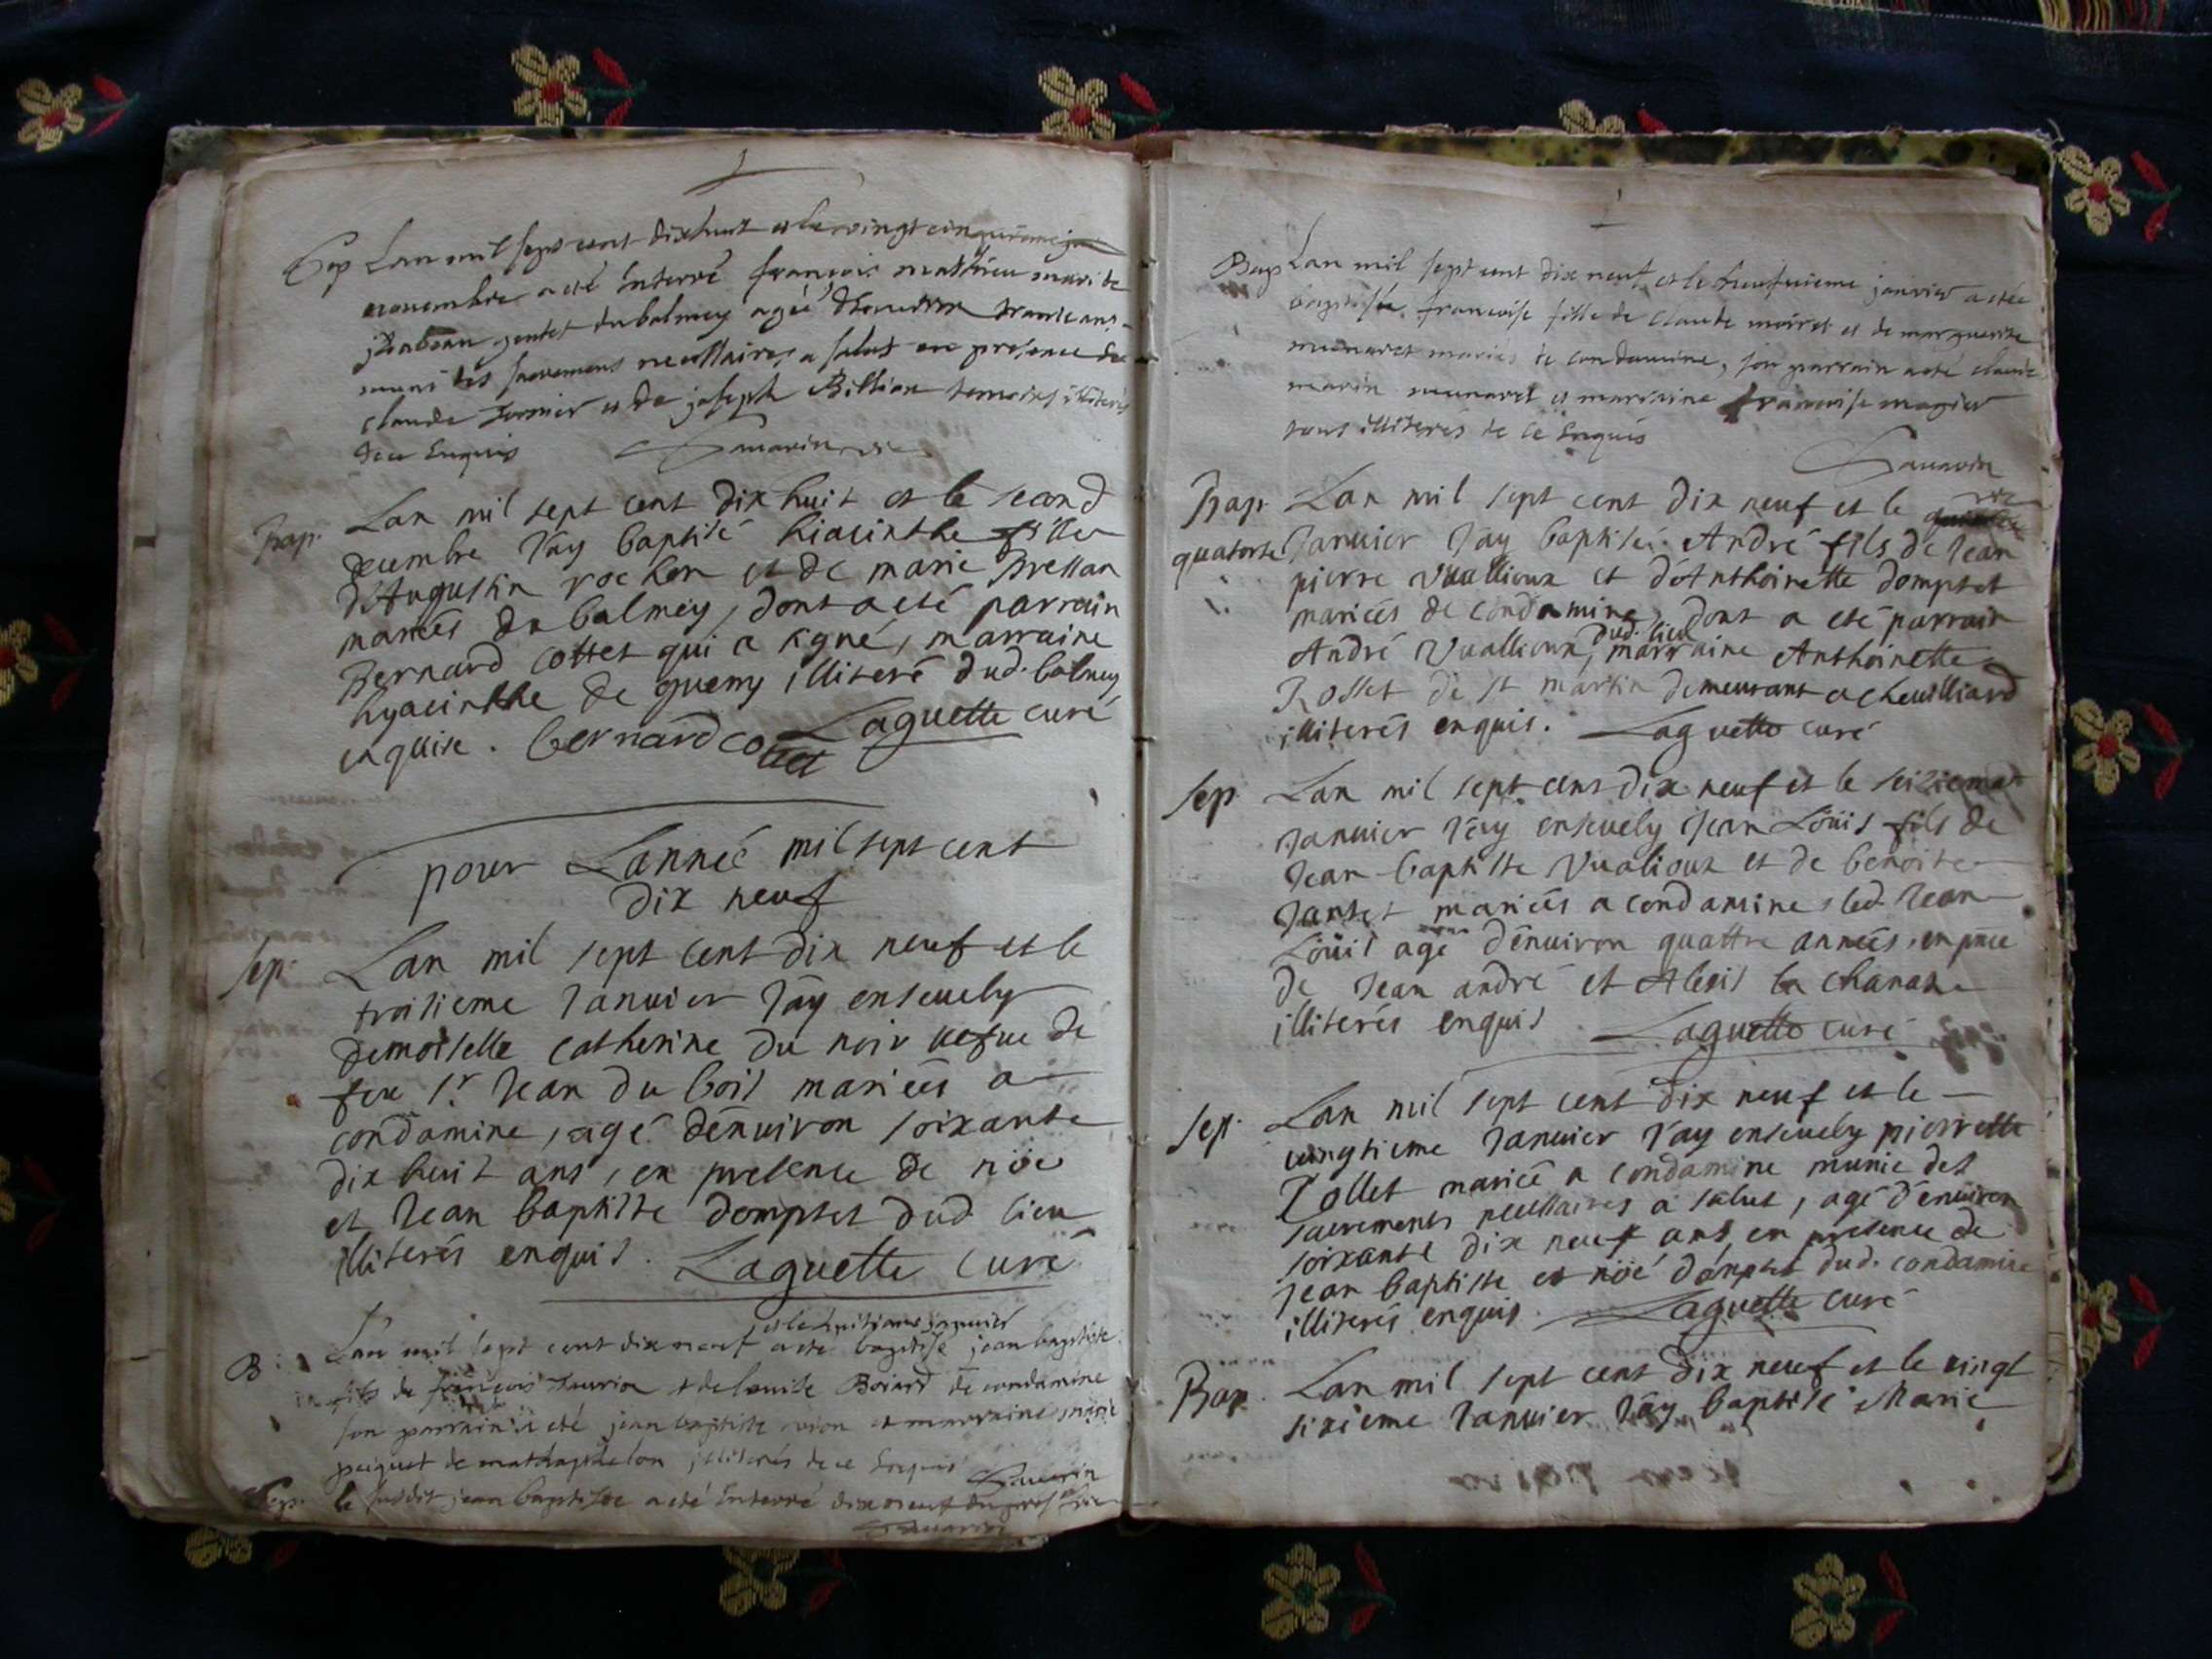 Sep Lan mil sept cent dixhuit et le vingt cinquieme
novembre a eté Enterré françois matthieu mari de
gentet du balmey agéé d'Environ trante ans
muni des sacremens necessaires a salut en presence de
claude et de joseph Billion temoins illiterés
de ce Enquis Savarin vic
Bap. Lan mil sept cent dix huit et le second
decembre J'ay baptisé hiacinthe fille
d'Augustin rochon et de marie Bressan
mariés du balmey, dont a eté parrain
Bernard cottet qui a signé, marraine
hyacinthe de quemy illiteré dud. balmey
enquise. bernard cottet Laguette curé
pour Lanneé mil sept cent
dix neuf
Sep. Lan mil sept cent dix neuf et le
troisieme Janvier J'ay ensevely
demoiselle catherine du noir vefue de
feu Sr. Jean du bois marieés a
condamine, agé d'enuiron soixante
dix huit ans, en presence de nöe
et Jean baptiste domptet dud. lieu
illiterés enquis. Laguette curé
et le huitieme janvier
B Lan mil sept cent dix neuf a ete baptisé jean baptiste
fils de françois et de louise Boiard de condamine
son parrain a eté jean baptiste et marraine marie
de matthaphelon illiterés de ce Enquis
Savarin
Sep. le susdit jean baptiste a eté Enterré dix neuf du
Savarin
Bap Lan mil sept cent dix neuf et le neufuieme janvier a etée
baptisée francoise fille de claude moiret et de marguerite
munaret mariés de condamine, son parrain a eté claude
marin munaret et marraine francoise
tous illiterés de ce Enquis
Savarin
vic
Bap. Lan mil sept cent dix neuf et le
quatorse Janvier J'ay baptisé André fils de Jean
pierre Vuallioux et d'Anthoinette domptet
marieés de condamine, dont a eté parrain
dud. lieu
André Vuallioux, marraine Anthoinette
Rosset de st martin demeurant a cheuilliard
illiterés enquis. Laguette curé
Sep. Lan mil sept cent dix neuf et le seizieme
Janvier J'ay ensevely Jean Loüis fils de
Jean baptiste Vualioux et de benoite
Jantet marieés a condamine, led. Jean
Loüis agé d'enuiron quattre anneés, en pnce
de Jean andré et Alexis la chanaz
illiterés enquis Laguette curé
Sep. Lan mil sept cent dix neuf et le
vingtieme Janvier J'ay ensevely pierrette
Tollet marieé a condamine munie des
sacrements necessaires a salut, agé d'enuiron
soixante dix neuf ans, en presence de
Jean baptiste et nöé domptet dud. condamine
illiterés enquis. Laguette curé
Bap. Lan mil sept cent dix neuf et le vingt
sixieme Janvier J'ay baptisé Marie